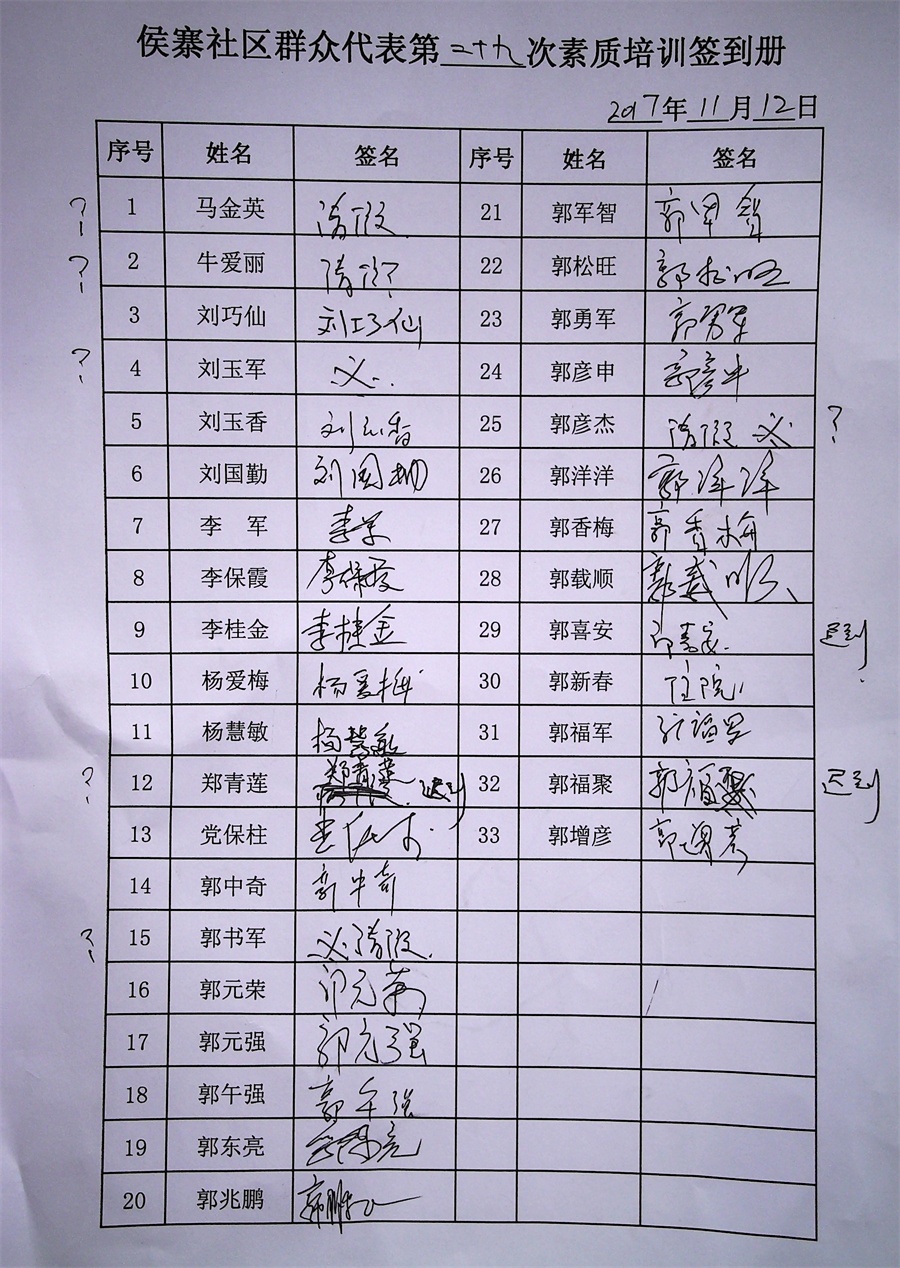 侯寨社区群众代表第二十九次素质培训签到册
2017年11月12日
序号 姓名 签名 序号 姓名 签名
? 1 马金英 请假 21 郭军智 郭军智
? 2 牛爱丽 请假? 22 郭松旺 郭松旺
3 刘巧仙 刘巧仙 23 郭勇军 郭勇军
? 4 刘玉军 24 郭彦申 郭彦申
5 刘玉香 刘玉香 25 郭彦杰 请假 ?
6 刘国勤 刘国勤 26 郭洋洋 郭洋洋
7 李军 李军 27 郭香梅 郭香梅
8 李保霞 李保霞 28 郭载顺 郭载顺
9 李桂金 李桂金 29 郭喜安 郭喜安 迟到
10 杨爱梅 杨爱梅 30 郭新春 住院
11 杨慧敏 杨慧敏 31 郭福军 郭福军
? 12 郑青莲 郑青莲 迟到 32 郭福聚 郭福聚 迟到
13 党保柱 党保柱 33 郭增彦 郭增彦
14 郭中奇 郭中奇
? 15 郭书军 请假
16 郭元荣 郭元荣
17 郭元强 郭元强
18 郭午强 郭午强
19 郭东亮 郭东亮
20 郭兆鹏